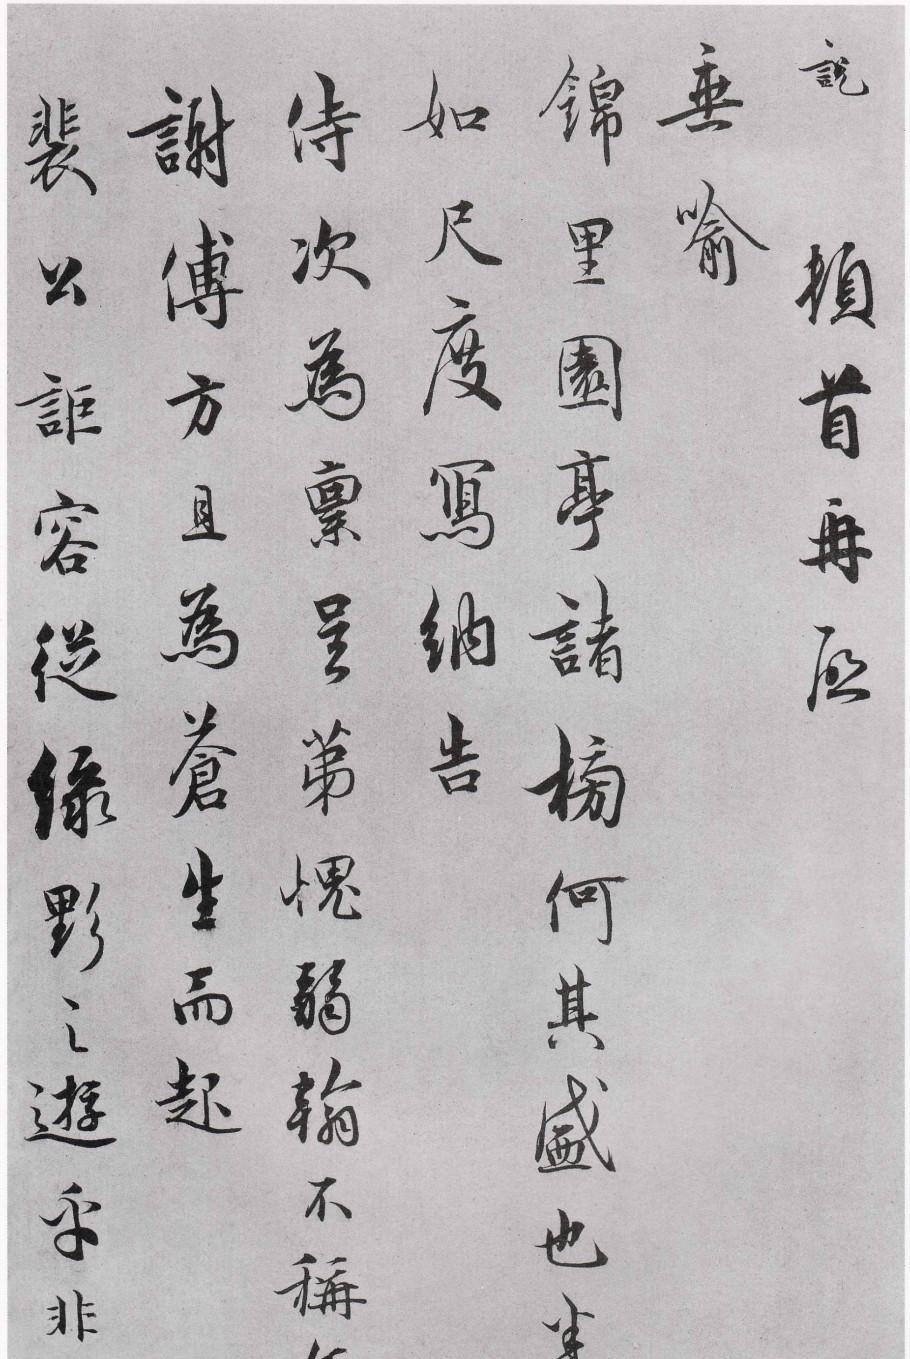 說 頓首再啟
垂喻
錦里園亭諸榜何其盛也
如尺度寫納告
侍次為稟呈第愧弱翰不稱
謝傅方且為蒼生而起
裴公詎容從綠野之遊乎非